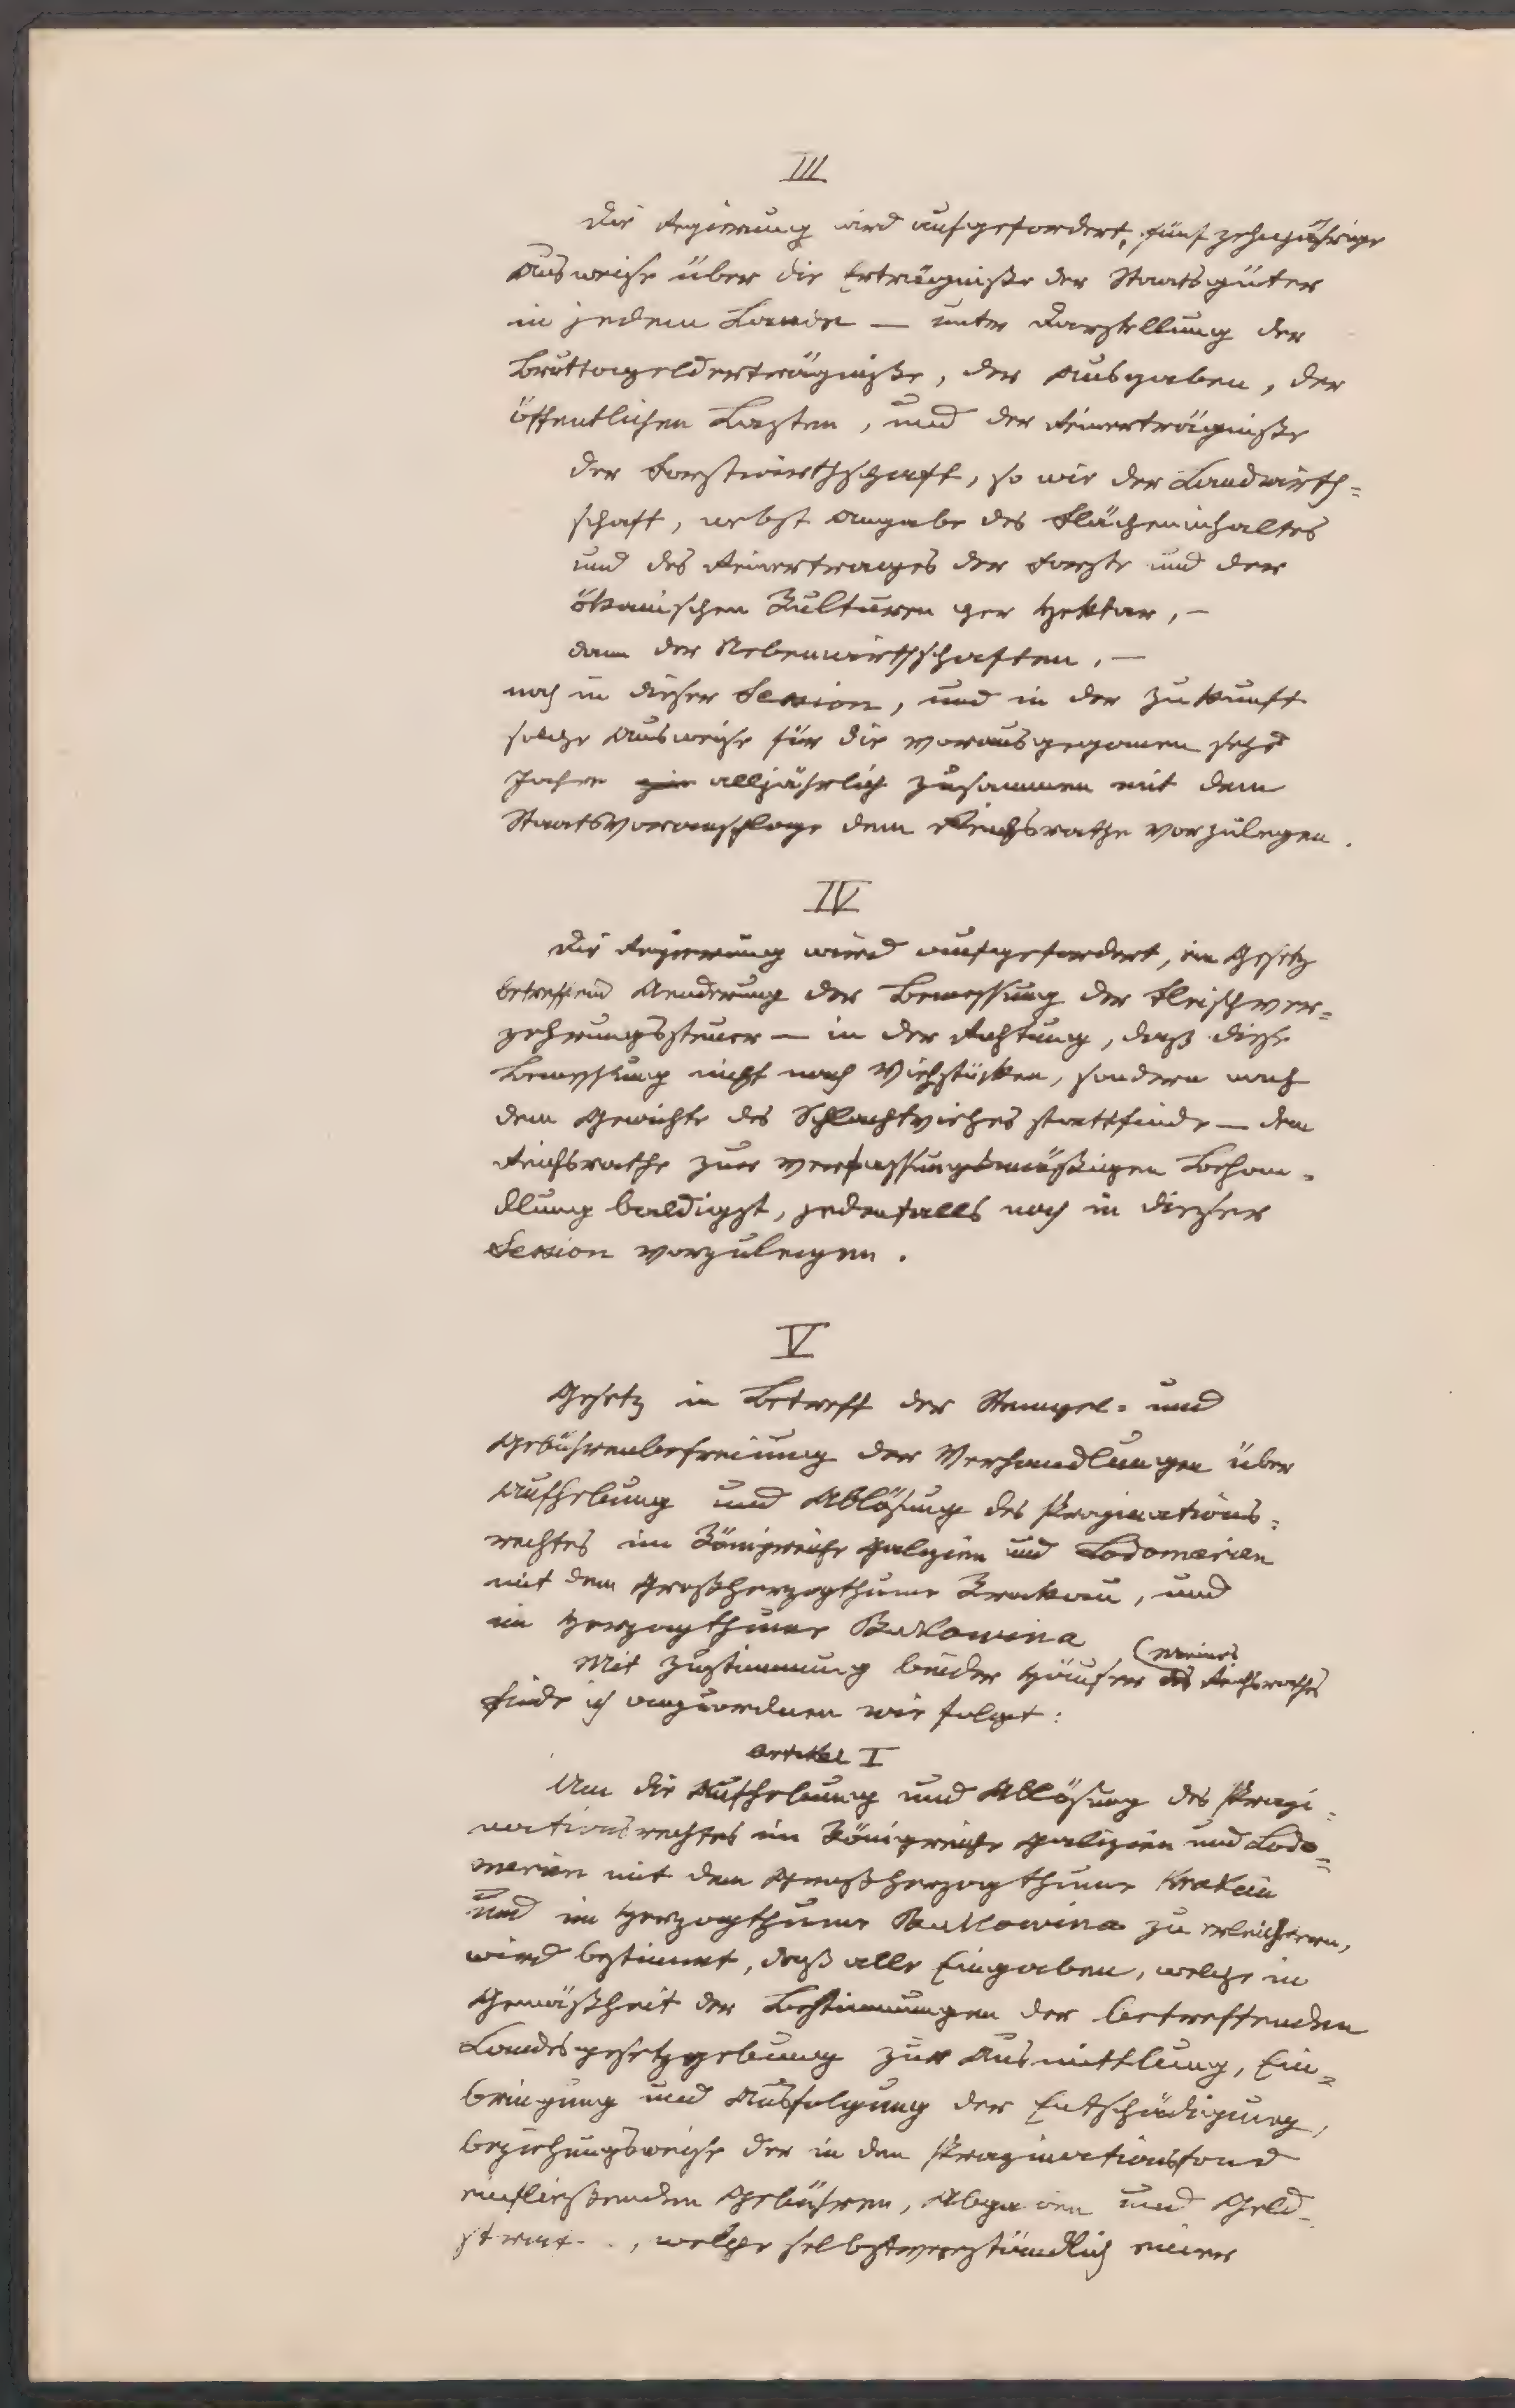 III
Die Regierung wird aufgefordert, fünfzehnjährige
Ausweise über die Erträgniße der Staatsgüter
in jedem Lande — unter Darstellung der
Bruttogelderträgniße, der Ausgaben, der
öffentlichen Lasten, und der Reinerträgniße
der Forstwirthschaft, so wie der Landwirth=
schaft, nebst Angabe des Flächeninhaltes
und des Reinertrages der Forste und der
ökonischen Kulturen per Hektar, —
dann der Nebenwirthschaften, —
noch in dieser Session, und in der Zukunft
solche Ausweise für die vorausgegangenen sechs
Jahre alljährlich zusammen mit dem
Staatsvoranschlage dem Reichsrathe vorzulegen.
IV
Die Regierung wird aufgefordert, ein Gesetz
betreffend Aenderung der Bemessung der Fleischver=
zehrungssteuer — in der Richtung, daß diese
Bemessung nicht nach Viehstücken, sondern nach
dem Gewichte des Schlachtviehes stattfinde — dem
Reichsrathe zur verfassungsmäßigen Behan=
dlung baldigst, jedenfalls noch in dieser
Session vorzulegen.
V
Gesetz in Betreff der Stempel= und
Gebührenbefreiung der Verhandlungen über
Aufhebung und Ablösung des Propinations=
rechtes im Königreiche Galizien und Lodomerien
mit dem Großherzogthume Krakau, und
im Herzogthume Bukowina
Mit Zustimmung beider Häuser (meines des Reichsrathes
finde ich anzuordnen wie folgt:
Artikel I
Um die Aufhebung und Ablösung des Propi=
nationsrechtes im Königreiche Galizien und Lodo=
merien mit dem Großherzogthume Krakau
und im Herzogthume Bukowina zu erleichtern,
wird bestimmt, daß alle Eingaben, welche in
Gemäßheit der Bestimmungen der betreffenden
Landesgesetzgebung zur Ausmittlung, Ein=
bringung und Ausfolgung der Entschädigung,
beziehungsweise der in den Propinationsfond
einfließenden Gebühren, Abgaben und Geld-
welche selbstverständlich einer